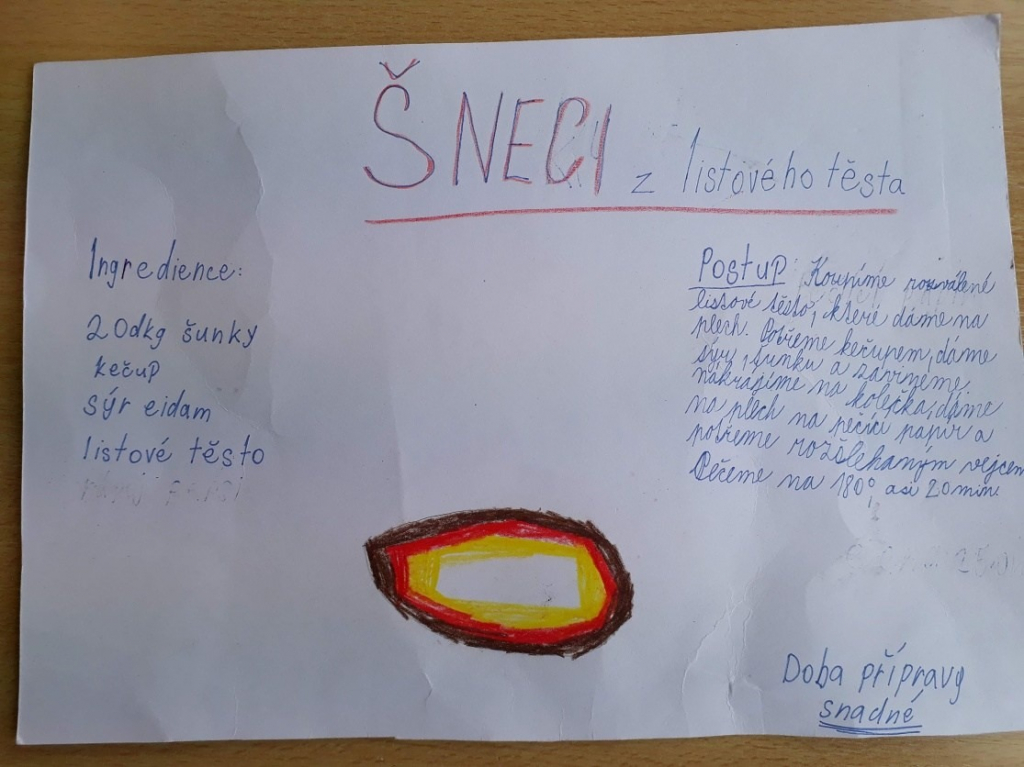 ŠNECI z listového těsta
Ingredience:
20dkg šunky
kečup
sýr eidam
listové těsto
Postup: Koupíme rozválené
listové těsto, které dáme na
plech. Potřeme kečupem, dáme
sýr, šunku a zavineme.
Nakrájíme na kolečka, dáme
na plech na pečící papír a
potřeme rozšlehaným vejcem
Pečeme na 180°, asi 20 min
Doba přípravy
snadné